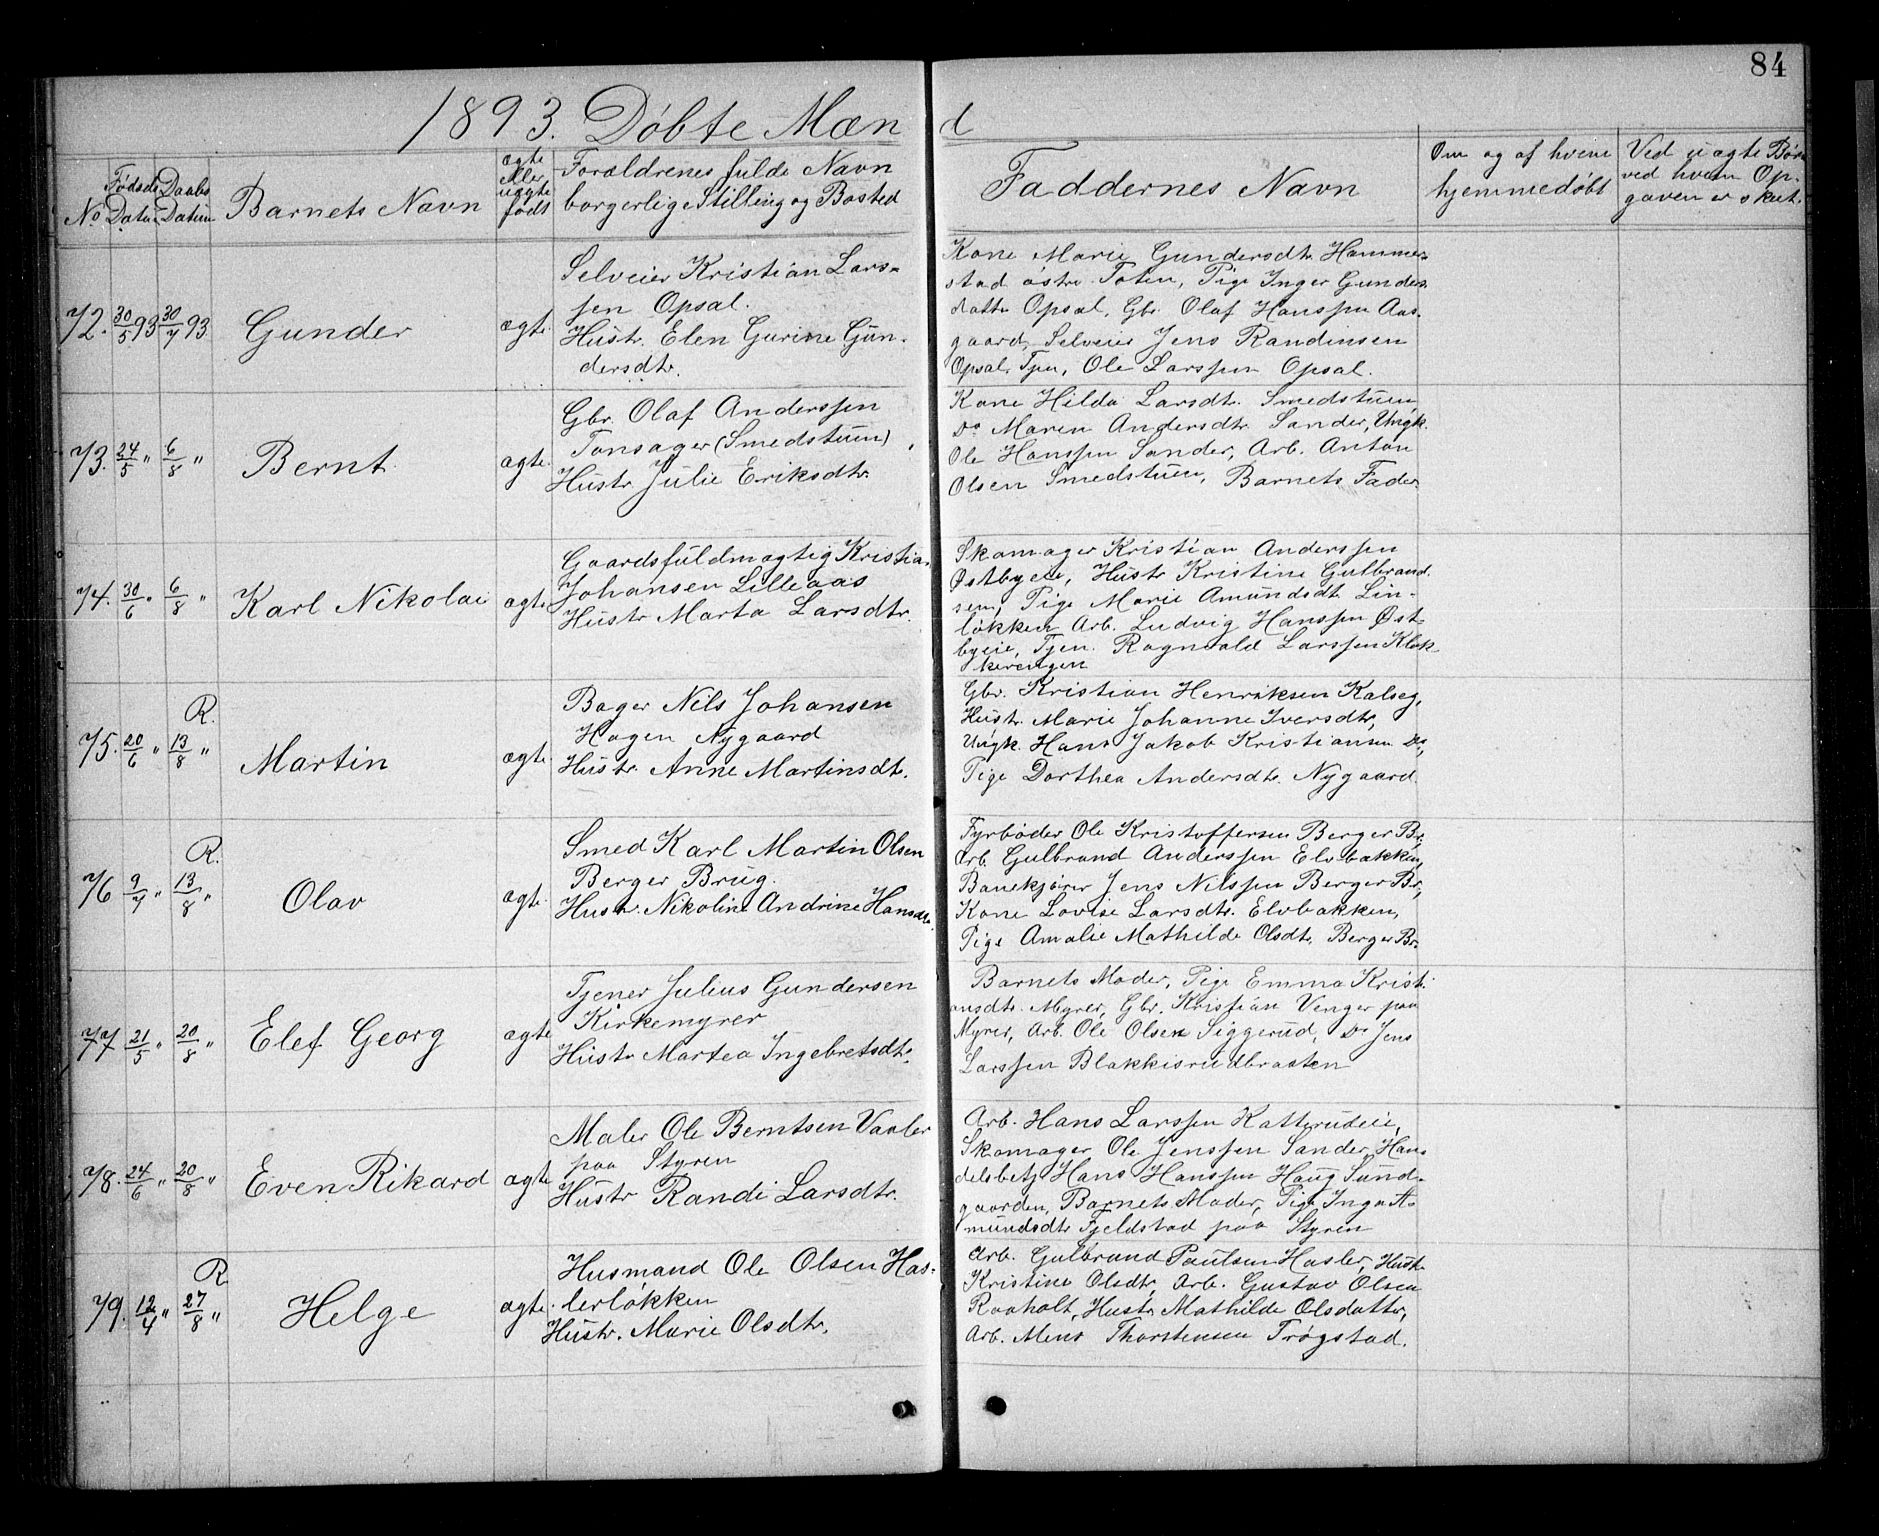 84
1893. Døbte Mænd
No.
Fødsels Datum
Daabs Datum
Barnets Navn
ægte eller uægte født
Forældrenes fulde Navn
borgerlige Stilling og Bosted
Faddernes Navn
Om og af hvem
hjemmedøbt
Ved uægte Børn
ved hvem Op-
gaven er skeet.
72. 30/5 93 30/7 93. Gunder ægte.
Selveier Kristian Lars-
sen Opsal.
Hustr. Elen Gurine Gun-
dersdtr.
Kone Marie Gundersdtr. Hammer-
stad østre Toten, Pige Inger Gunders
datter Opsal, Gbr. Olaf Hanssen Aas-
gaard, Selveier Jens Randinsen
Opsal, Tjen, Ole Larssen Opsal.
73. 24/5 " 6/8 " Bernt. ægte.
Gbr. Olaf Anderssen
Tonsager (Smedstuen)
Hustr. Julie Eriksdtr.
Kone Hilda Larsdtr. Smedstuen
Do Maren Andersdtr. Sander, Ungk.
Ole Hanssen Sander, Arb. Anton
Olsen Smedstuen, Barnets Fader.
74. 30/6 " 6/8 " Karl Nikolai ægte
Gaardsfuldmægtig Kristian
Johansen Lilleaas
Hustr. Marta Larsdtr.
Skomager Kristian Anderssen
Østbyeie, Hustr Kristine Gulbrand-
sen, Pige Marie Amundsdtr. Lin-
løkken Arb. Ludvig Hanssen Øst-
byeie, Tjen. Ragnvald Larssen Klok-
kerengen
75. 20/6 " R. 13/8 " Martin ægte.
Bager Nils Johansen
Hagen Nygaard
Hustr. Anne Martinsdtr.
Gbr. Kristian Henriksen Kalseg,
Hustr. Marie Johanne Iversdtr,
Ungk. Hans Jakob Kristiansen Do,
Pige Dorthea Andersdtr. Nygaard.
76 9/7 " R. 13/8 " Olav ægte.
Smed Karl Martin Olsen
Berger Brug.
Hustr. Nikoline Andrine Hansdtr.
Fyrbøder Ole Kristoffersen Berger Br,
Arb. Gulbrand Anderssen Elvbakken,
Banekjører Jens Nilssen Berger Br,
Kone Lovise Larsdtr. Elvbakken,
Pige Amalie Mathilde Olsdtr. Berger Br.
77 21/5 " 20/8 " Elef Georg ægte
Tjener Julius Gundersen
Kirkemyrer
Hustr. Martea Ingebretsdtr.
Barnets Moder, Pige Emma Kristi-
ansdtr. Myrer, Gbr. Kristian Venger paa
Myrer, Arb. Ole Olsen Siggerud, Do Jens
Larssen Blakkisrudbraaten
78. 24/6 " 20/8 " Even Rikard ægte
Maler Ole Berntsen Vaaler
paa Styren
Hustr Randi Larsdtr.
Arb. Hans Larssen Katterudeie,
Skomager Ole Jenssen Sander, Han-
delsbetj. Hans Hanssen Haug Sund-
gaarden, Barnets Moder, Pige Inga A-
mundsdtr. Fjeldstad paa Styren
79. 12/4 " R 27/8 " Helge ægte.
Husmand Ole Olsen Has-
lerløkken
Hustr. Marie Olsdtr.
Arb. Gulbrand Paulsen Hasler, Hustr.
Kristine Olsdtr, Arb. Gustav Olsen
Raaholt, Hustr. Mathilde Olsdatter,
Arb. Mens Thorstensen Trøgstad.